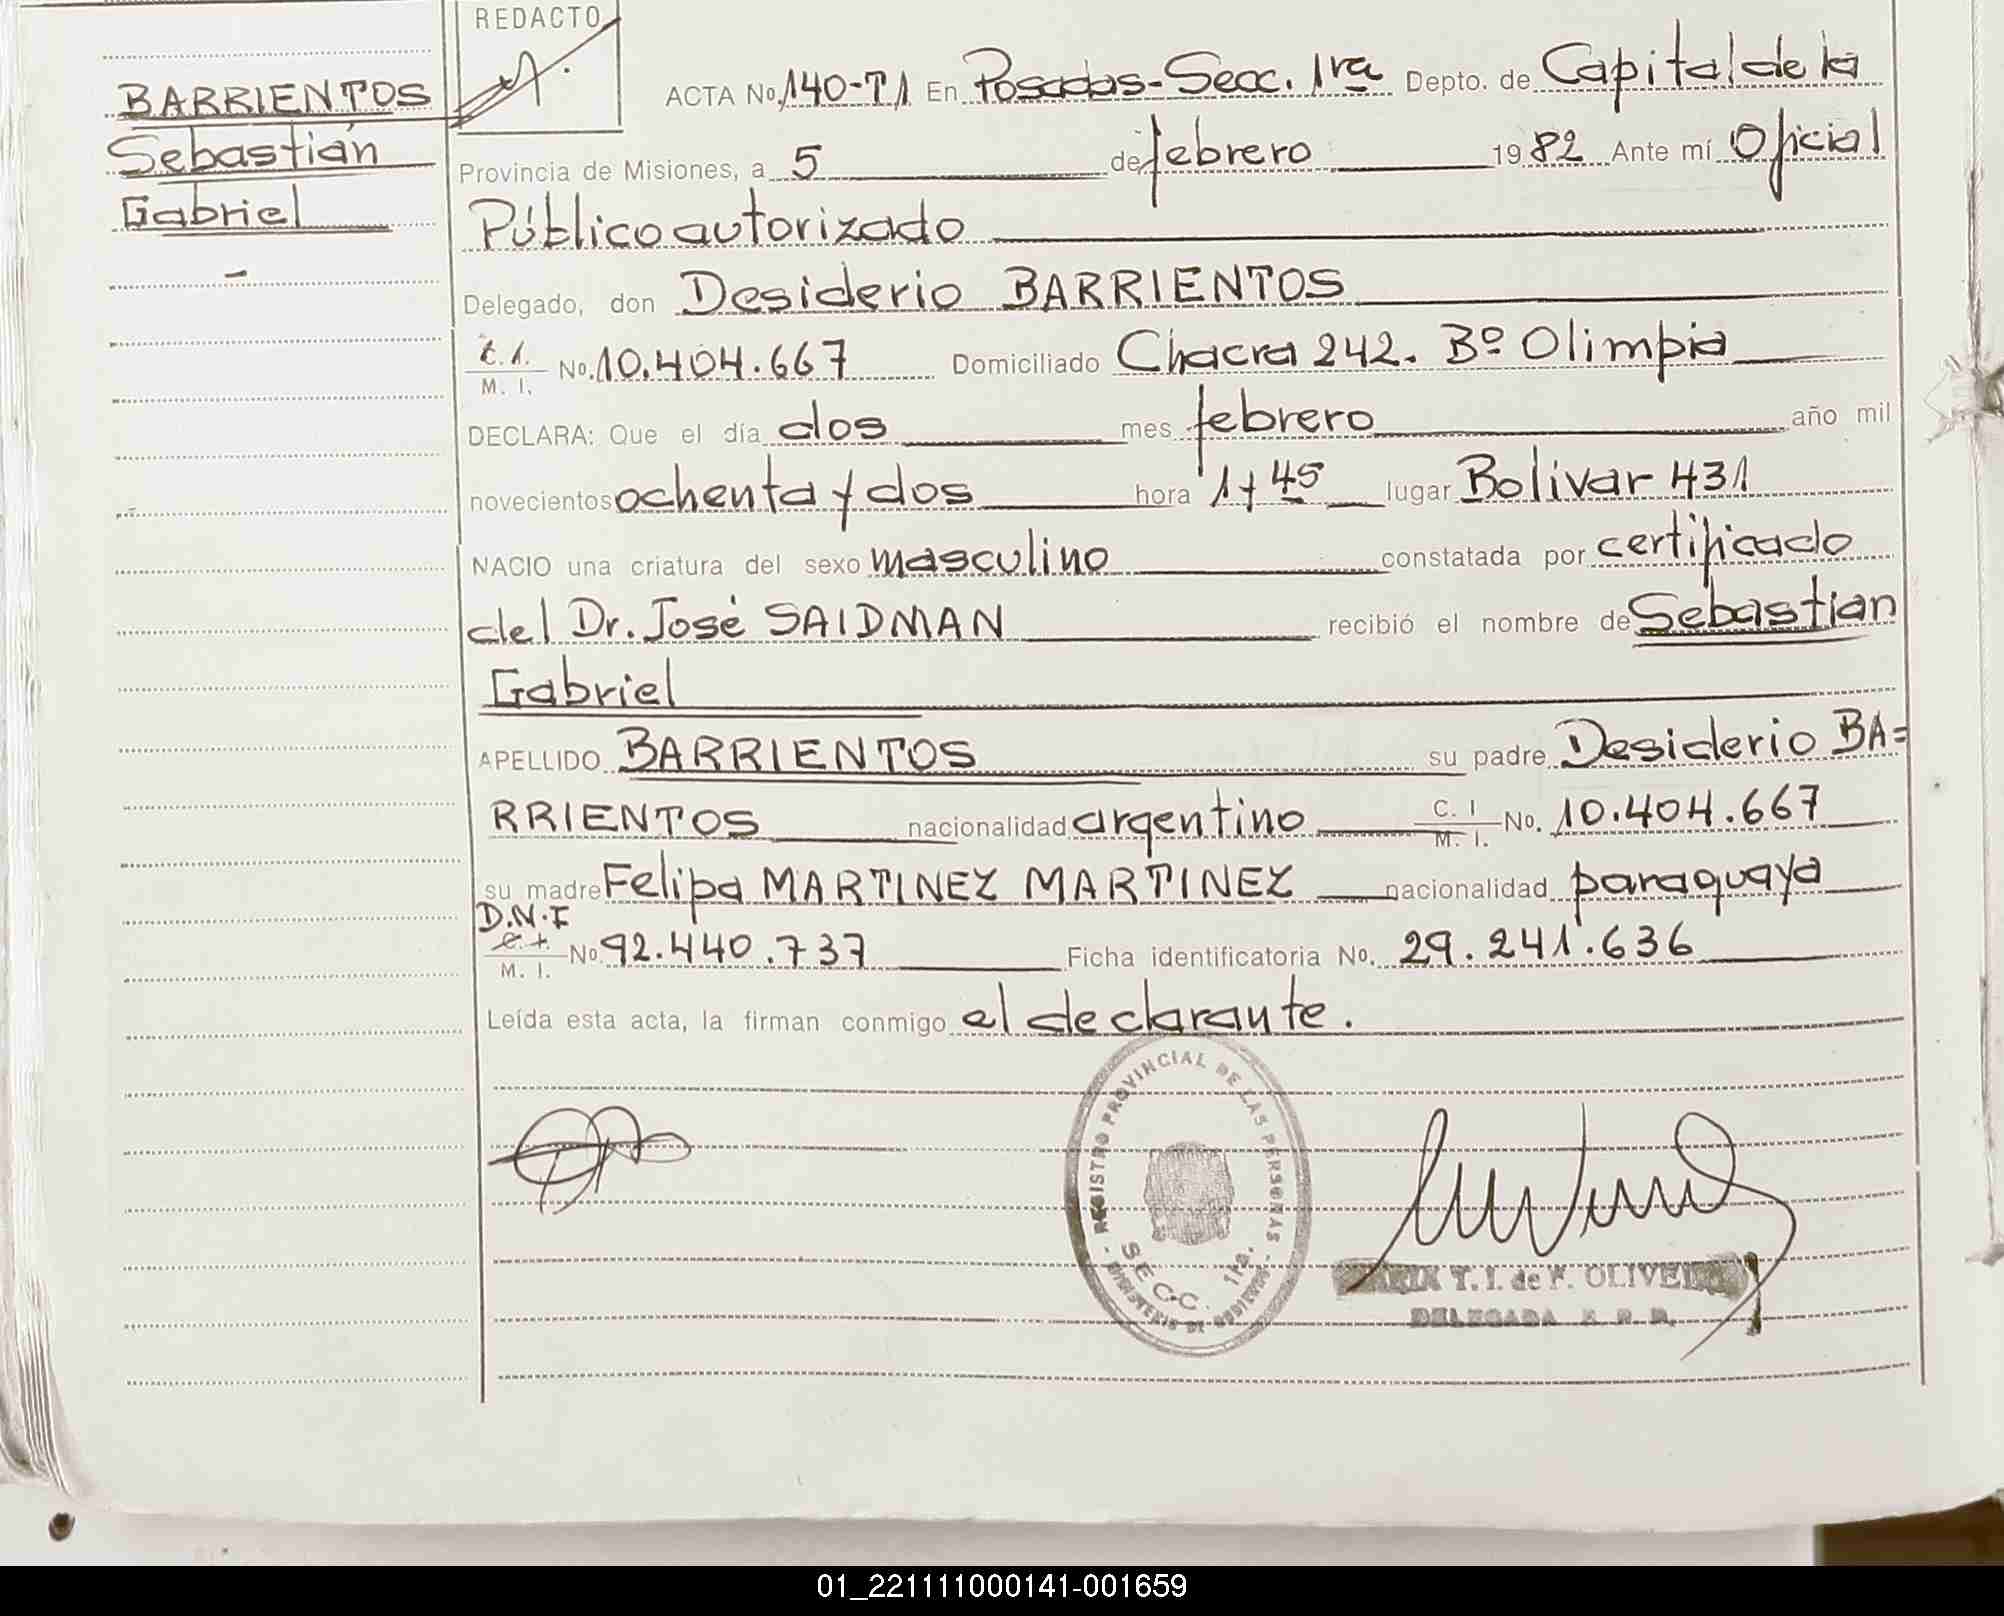 BARRIENTOS
Sebastián
Gabriel
REDACTO
ACTA No. 140-T1 En Posadas-Secc. 1ra Depto. de Capital de la
Provincia de Misiones, a 5 de febrero 19 82 Ante mí Oficial
Público autorizado
Delegado, don Desiderio BARRIENTOS
C.I.
M. I. No. 10.404.667 Domiciliado Chacra 242. Bº Olimpia
DECLARA: Que el día dos mes febrero año mil
novecientos ochenta y dos hora 1 y 45 lugar Bolivar 431
NACIO una criatura del sexo masculino constatada por certificado
del Dr. José SAIDMAN recibió el nombre de Sebastian
Gabriel
APELLIDO BARRIENTOS su padre Desiderio BA=
RRIENTOS nacionalidad argentino C. I. M. I. No. 10.404.667
su madre Felipa MARTINEZ MARTINEZ nacionalidad paraguaya
D.N.I
C.I.
M. I. No. 92.440.737 Ficha identificatoria No. 29.241.636
Leída esta acta, la firman conmigo el declarante.
REGISTRO PROVINCIAL DE LAS PERSONAS - MINISTERIO DE GOBIERNO -
SECC. 1ra.
T. I. de F. OLIVEIRA
DELEGADA
01_221111000141-001659